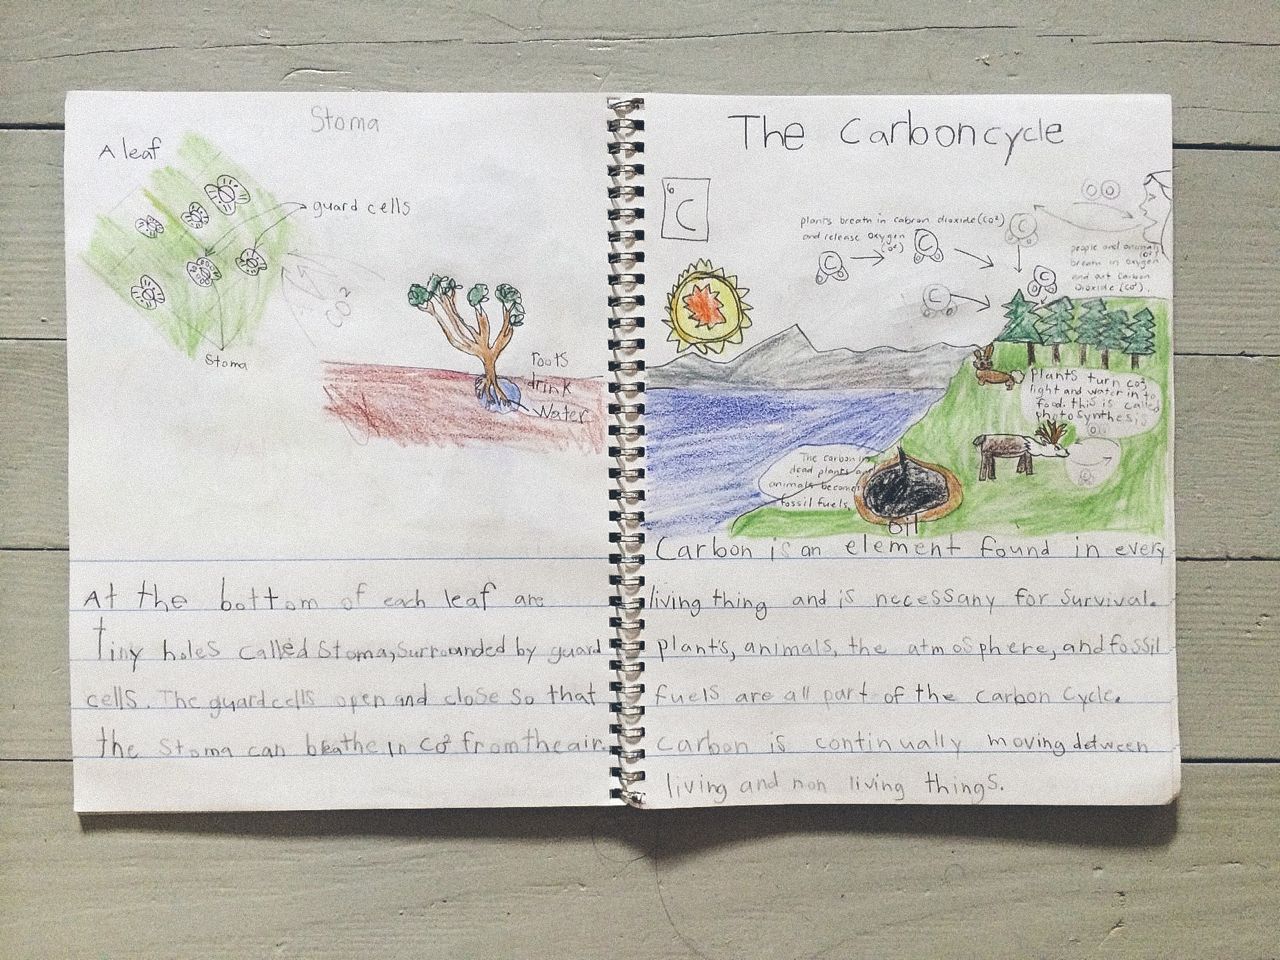 Stoma
A leaf
guard cells
CO²
Stoma
roots
drink
Water
At the bottom of each leaf are
tiny holes called Stoma, surrounded by guard
cells. The guard cells open and close so that
the Stoma can breathe in CO² from the air.
The Carboncycle
6
C
plants breath in cabron dioxide (CO²)
and release oxygen
(O²)
C
C
C
C
C
people and animals
breath in oxygen (O²)
and out Carbon
Dioxide (CO²).
plants turn CO²,
light and water in to
food. this is called
photosynthesis
The carbon in
dead plants and
animals become
fossil fuels.
oil
Carbon is an element found in every
living thing and is necessany for survival.
plants, animals, the atmosphere, and fossil
fuels are all part of the Carbon Cycle.
Carbon is continually moving between
living and non living things.